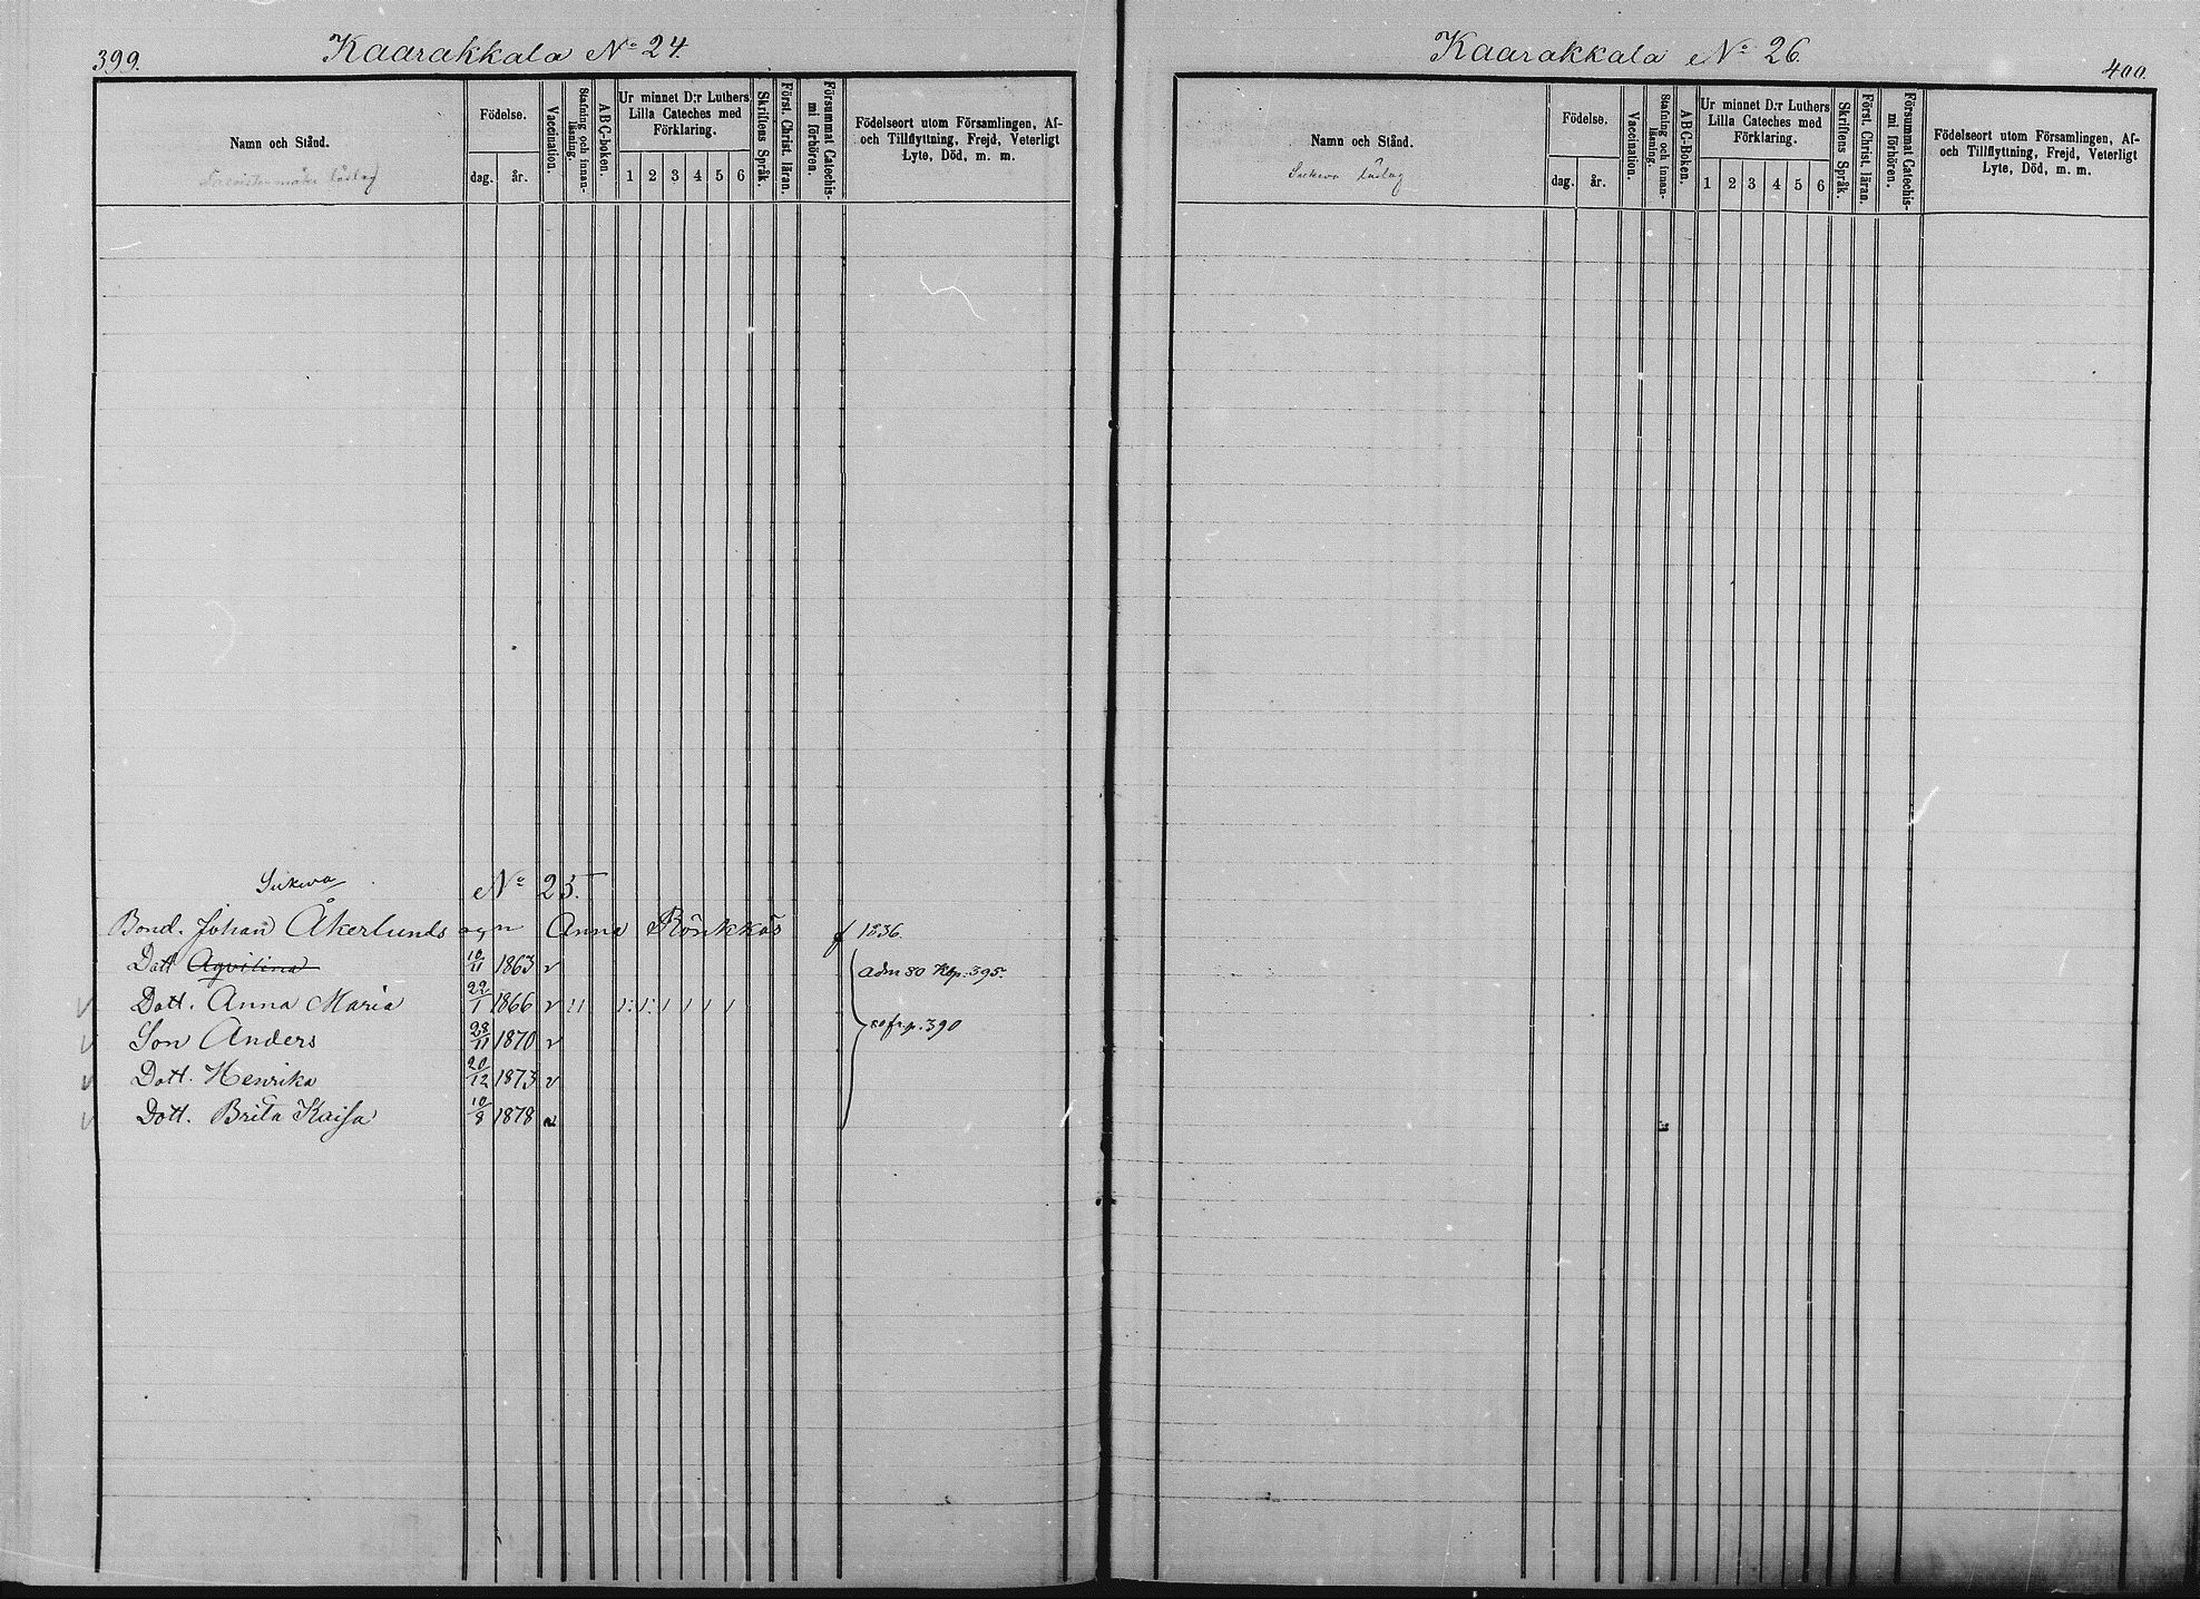 399.
Kaarakkala No 24.
Namn och Stånd.
Födelse.
dag.
år.
Vaccination.
Stafning och innan-
läsning.
ABC-boken.
Ur minnet D:r Luthers
Lilla Cateches med
Förklaring.
1 2 3 4 5 6
Skriftens Språk.
Först. Christ. läran.
Försummat Catechis-
mi förhören.
Födelseort utom Församlingen, Af-
och Tillflyttning, Frejd, Veterligt
Lyte, Död, m. m.
No 25.
Bond. Johan Åkerlunds Anna Rönkkös f 1836.
Dott Aqvilina 10/11 1863 v Adm 80 p. 395.
Dott. Anna Maria 22/1 1866 v
p. 390
Son Anders 28/11 1870 v
Dott. Henrika 20/12 1873 v
Dott. Brita Kaisa 10/8 1878 v
Kaarakkala No 26.
400.
Namn och Stånd.
Födelse.
dag.
år.
Vaccination.
Stafning och innan-
läsning.
ABC-Boken.
Ur minnet D:r Luthers
Lilla Cateches med
Förklaring.
1 2 3 4 5 6
Skriftens Språk.
Först. Christ. läran.
Försummat Catechis-
mi förhören.
Födelseort utom Församlingen, Af-
och Tillflyttning, Frejd, Veterligt
Lyte, Död, m. m.